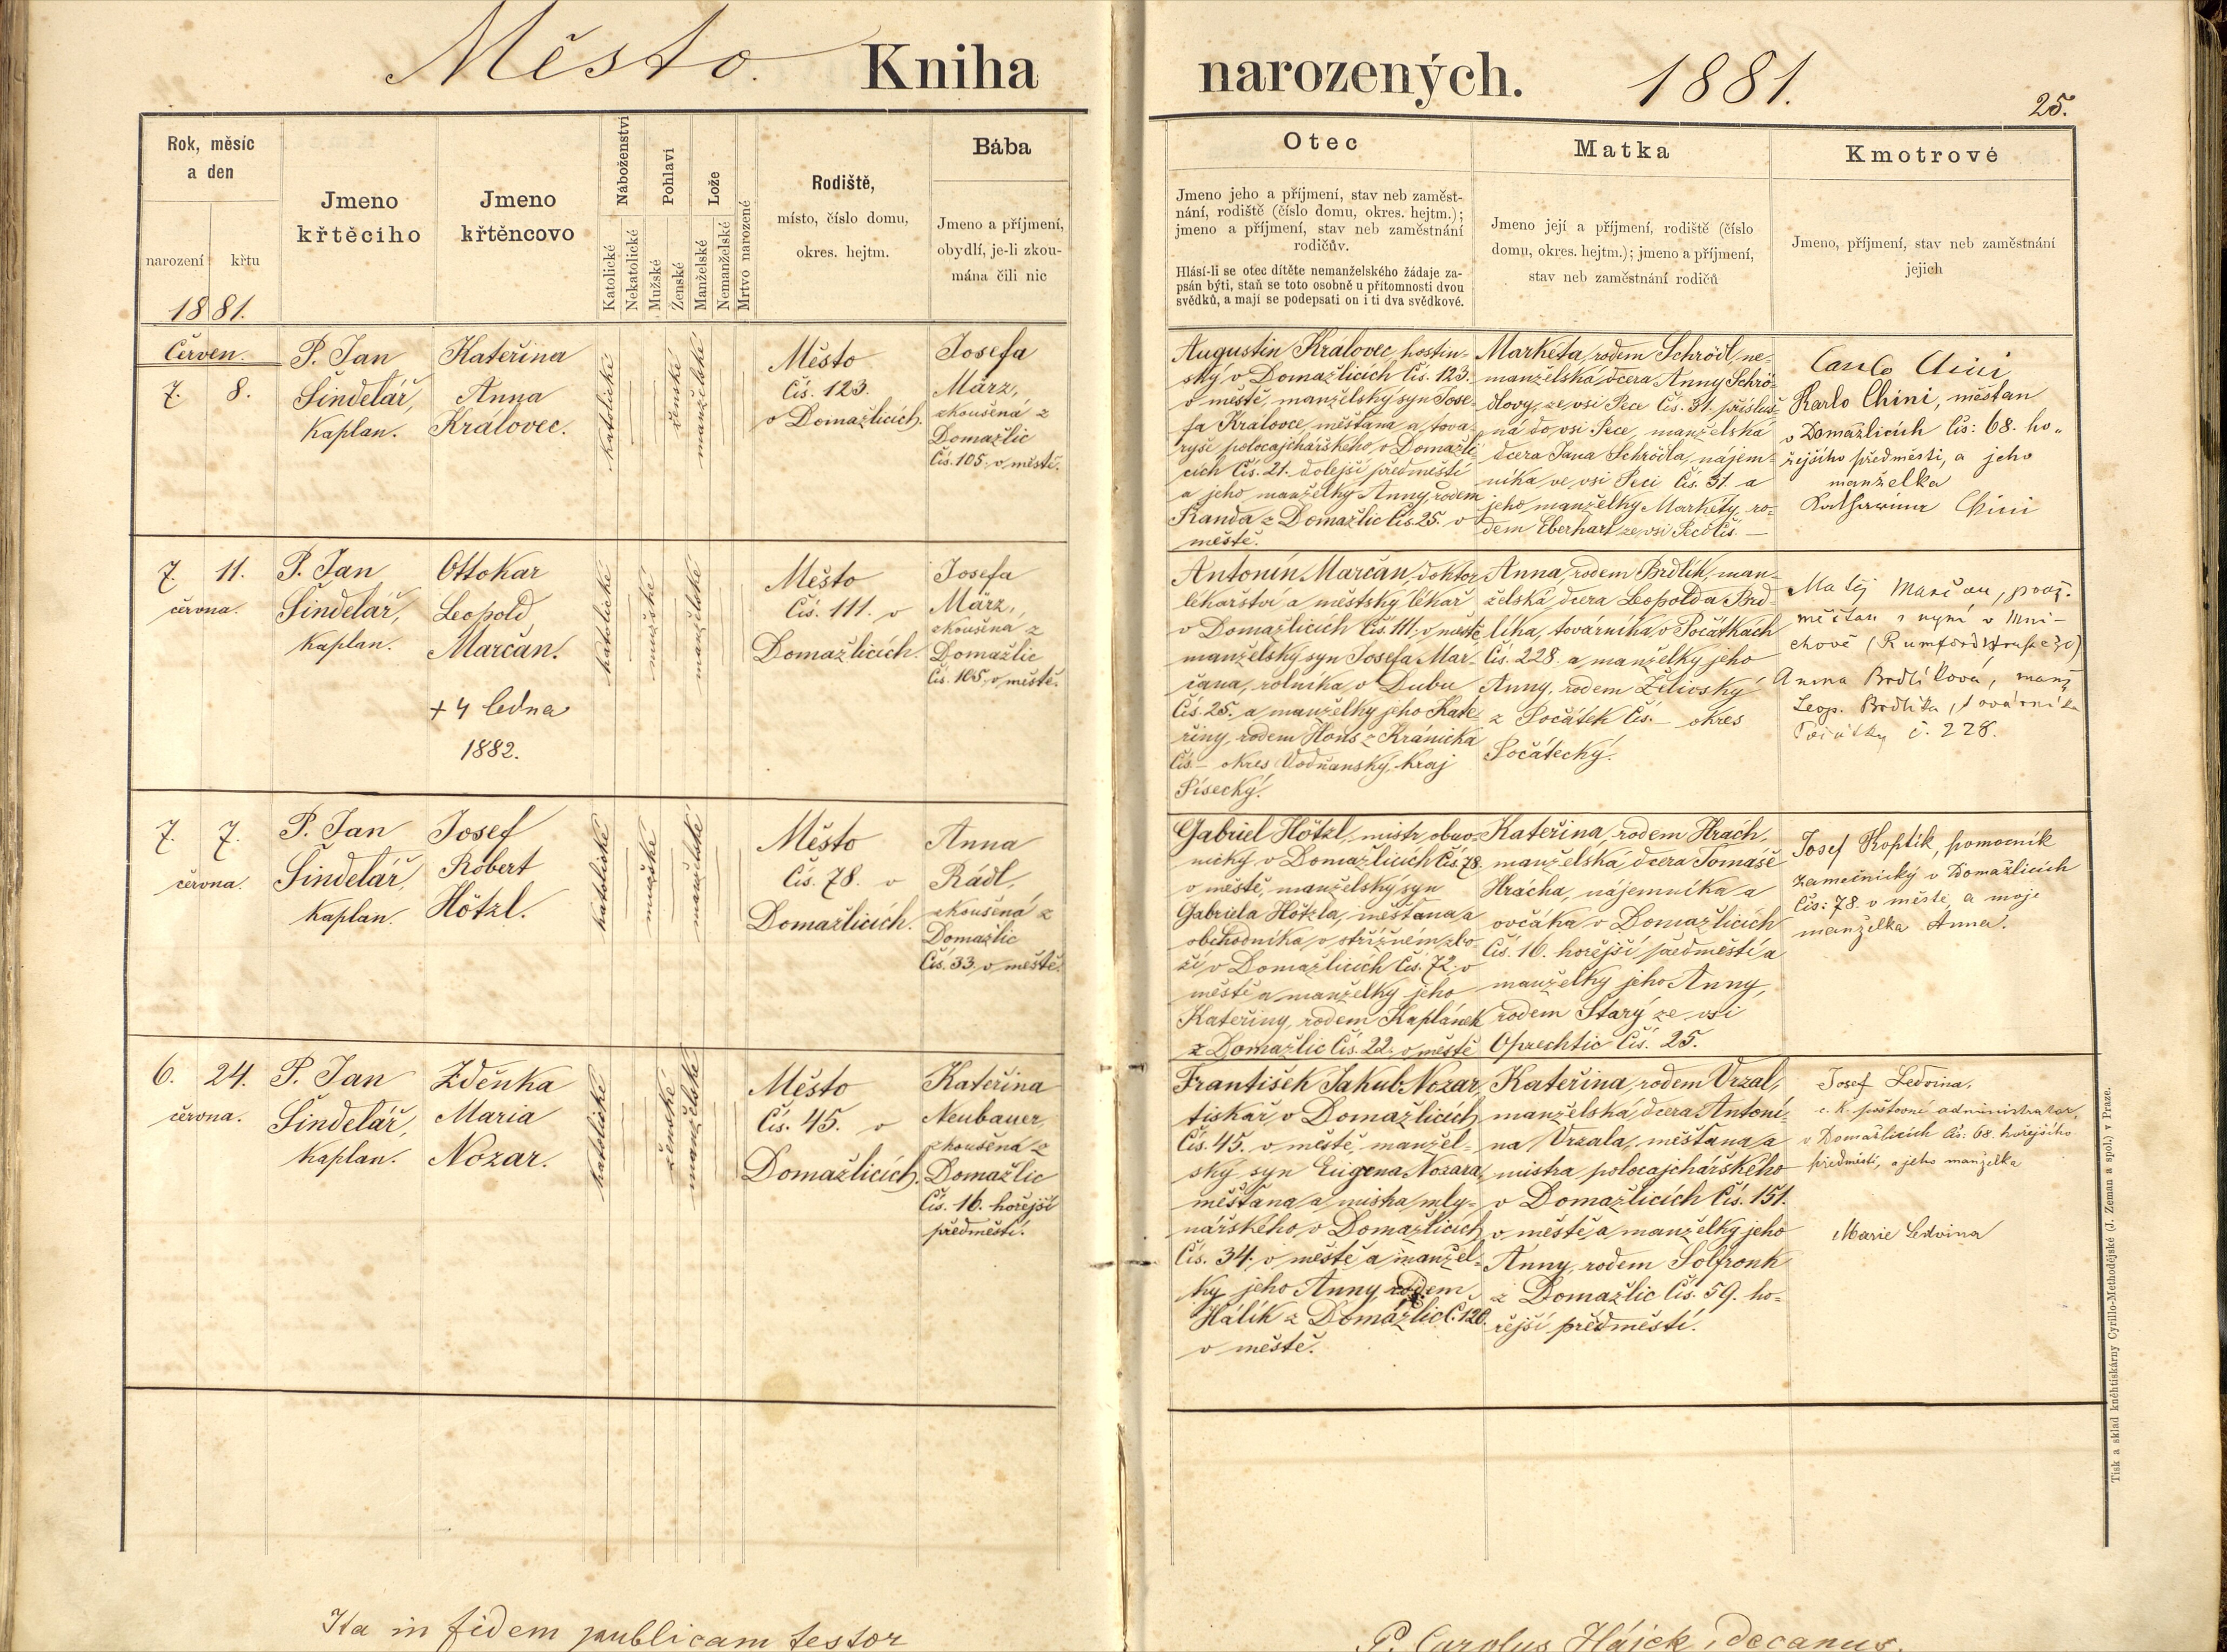 Město. Kniha narozených. 1881.
25.
Rok, měsíc
a den
narození
křtu
1881.
Jmeno
křtěcího
Jmeno
křtěncovo
Náboženství
Katolické
Nekatolické
Pohlaví
Mužské
Ženské
Lože
Manželské
Nemanželské
Mrtvo narozené
Rodiště,
místo, číslo domu,
okres. hejtm.
Bába
Jmeno a příjmení,
obydlí, je-li zkou-
mána čili nic
Otec
Jmeno jeho a příjmení, stav neb zaměst-
nání, rodiště (číslo domu, okres. hejtm.);
jmeno a příjmení, stav neb zaměstnání
rodičův.
Hlásí-li se otec dítěte nemanželského žádaje za-
psán býti, staň se toto osobně u přítomnosti dvou
svědků, a mají se podepsati on i ti dva svědkové.
Matka
Jmeno její a příjmení, rodiště (číslo
domu, okres. hejtm.); jmeno a příjmení,
stav neb zaměstnání rodičů
Kmotrové
Jmeno, příjmení, stav neb zaměstnání
jejich
Červen.
7. 8.
P. Jan
Šindelář,
kaplan.
Kateřina
Anna
Královec.
katolické
ženské
manželské
Město
Čís. 123.
v Domažlicích.
Josefa
März,
zkoušená z
Domažlic
Čís. 105. v městě.
Augustin Královec, hostin-
ský v Domažlicích Čís. 123.
v městě, manželský syn Jose-
fa Královce, měšťana a tova-
ryše polocajchářského v Domažli-
cích Čís. 21. dolejší předměstí
a jeho manželky Anny, rodem
Kanda z Domažlic Čís. 25. v
městě.
Markéta, rodem Schrödl, ne-
manželská dcera Anny Schrö-
dlovy, ze vsi Pece Čís. 31. přísluš-
ná do vsi Pece, manželská
dcera Jana Schrödla, nájem-
níka ve vsi Peci Čís. 31. a
jeho manželky Markéty, ro-
dem Eberhart ze vsi Pece Čís. —
Carlo Chini
Karlo Chini, měšťan
v Domažlicích Čís: 68. ho-
řejšího předměstí, a jeho
manželka
Katharina Chini
7. 11.
června.
P. Jan
Šindelář,
kaplan.
Ottokar
Leopold
Marčan.
+ 4 ledna
1882.
katolické
mužské
manželské
Město
Čís. 111. v
Domažlicích.
Josefa
März,
zkoušená z
Domažlic
Čís. 105. v městě.
Antonín Marčan, doktor
lékařství a městský lékař
v Domažlicích Čís. 111. v městě,
manželský syn Josefa Mar-
čana, rolníka v Dubu
Čís. 25. a manželky jeho Kate-
řiny, rodem Hons z Kránicka
Čís. — okres Vodňanský, kraj
Písecký.
Anna, rodem Brdlík, man-
želská dcera Leopolda Brd-
líka, továrníka v Počátkách
Čís. 228. a manželky jeho
Anny, rodem Želivský
z Počátek Čís. — okres
Počátecký.
Matěj Marčan, praž.
měšťan, nyní v Mni-
chově
Anna Brdlíková, manž.
Leop. Brdlíka, továrníka
Počátky č. 228.
7. 7.
června.
P. Jan
Šindelář,
kaplan.
Josef
Robert
Hötzl.
katolické
mužské
manželské
Město
Čís. 78. v
Domažlicích.
Anna
Rádl,
zkoušená z
Domažlic
Čís. 33. v městě.
Gabriel Hötzl, mistr obuv-
nický v Domažlicích Čís. 78.
v městě, manželský syn
Gabriela Hötzla, měšťana a
obchodníka v střižném zbo-
ží v Domažlicích Čís. 72. v
městě a manželky jeho
Kateřiny, rodem Kaplánek
z Domažlic Čís. 22. v městě
Kateřina, rodem Hrách,
manželská dcera Tomáše
Hrácha, nájemníka a
ovčáka v Domažlicích
Čís. 16. hořejší předměstí a
manželky jeho Anny,
rodem Starý ze vsi
Oprechtic Čís. 25.
Josef Koptík, pomocník
zámečnický v Domažlicích
Čís: 78. v městě, a moje
manželka Anna.
6. 24.
června.
P. Jan
Šindelář,
kaplan.
Zděnka
Maria
Nozar.
katolické
ženské
manželské
Město
Čís. 45. v
Domažlicích.
Kateřina
Neubauer,
zkoušená z
Domažlic
Čís. 16. hořejší
předměstí.
František Jakub Nozar,
tiskař v Domažlicích
Čís. 45. v městě, manžel-
ský syn Eugena Nozara,
měšťana a mistra mly-
nářského v Domažlicích
Čís. 34. v městě a manžel-
ky jeho Anny, rodem
Hálík z Domažlic Č. 120.
v městě.
Kateřina, rodem Vrzal,
manželská dcera Antoní-
na Vrzala, měšťana a
mistra polocajchářského
v Domažlicích Čís. 151.
v městě a manželky jeho
Anny, rodem Solfronk
z Domažlic Čís. 59. ho-
řejší předměstí.
Josef Ledvina,
c. k. poštovní administrator,
v Domažlicích Čís: 68. hořejšího
předměstí, a jeho manželka
Marie Ledvina
Ita in fidem publicam testor
P. Carolus Hájek, decanus.
Tisk a sklad kněhtiskárny Cyrillo-Methodějské (J. Zeman a spol.) v Praze.